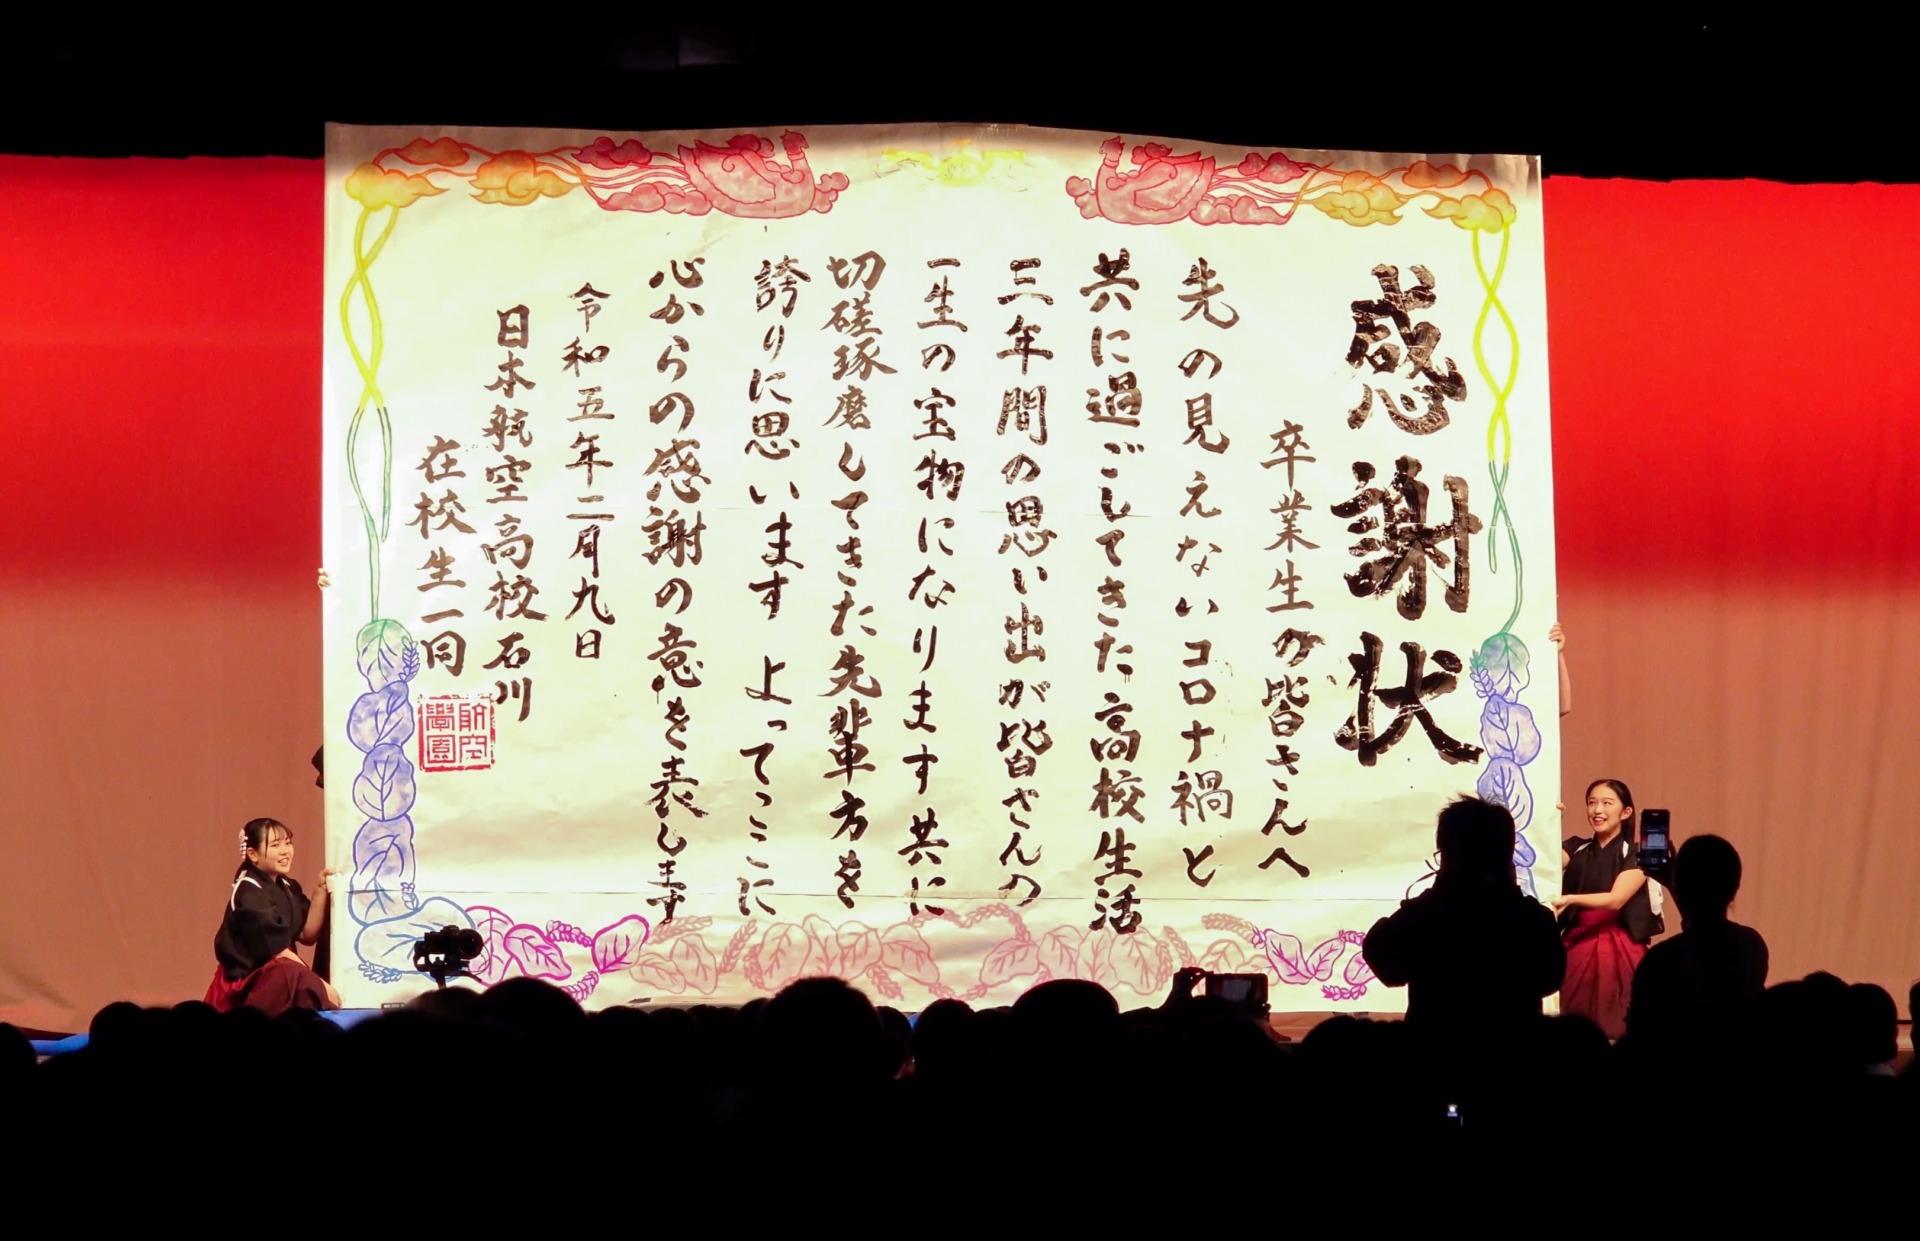 感謝状
卒業生の皆さんへ
先の見えないコロナ禍と
共に過ごしてきた高校生活
三年間の思い出が皆さんの
一生の宝物になります共に
切磋琢磨してきた先輩方を
誇りに思います よってここに
心からの感謝の意を表します
令和五年二月九日
日本航空高校石川
在校生一同
航空
學園